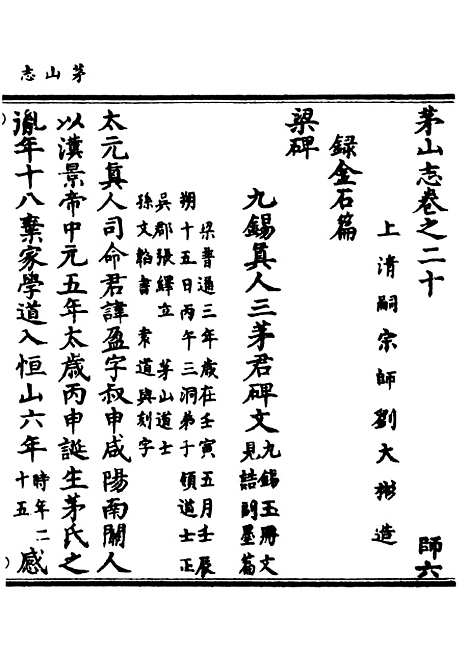 茅山志
茅山志卷之二十　師六
上清嗣宗師劉大彬造
録金石篇
梁碑
九錫真人三茅君碑文九錫玉冊文
見誥副墨篇
梁普通三年歳在壬寅五月壬辰
朔十五日丙午三洞弟子領道士正
吳郡張繹立　茅山道士
孫文韜書　袁道與刻字
太元真人司命君諱盈字叔申咸陽南關人
以漢景帝中元五年太歳丙申誕生茅氏之
胤年十八棄家學道入恒山六年時年二
十五感